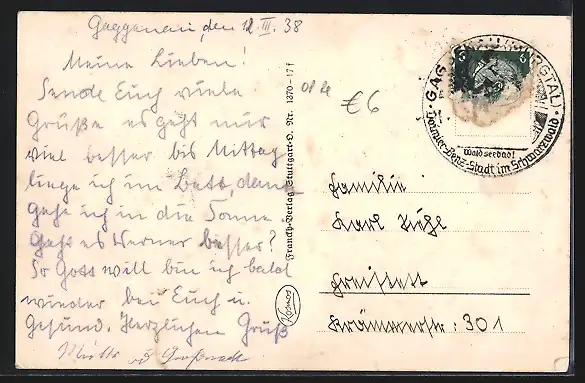 Gaggenau, den 12. III. 38
Meine Lieben!
Sende Euch viele
Grüße es geht mir
viel besser bis Mittag
liege ich im Bett, dann
gehe ich in die Sonne.
Geht es Werner besser?
So Gott will bin ich bald
wieder bei Euch u.
Gesund. Herzlichen Gruß
€6
Franckh-Verlag Stuttgart-O. Nr. 1370-17f
Kosmos
GAGGENAU (MURGTAL)
Waldseebad!
Daimler-Benz-Stadt im Schwarzwald
6
Familie
Karl
Freistett
Krämmerstr: 301